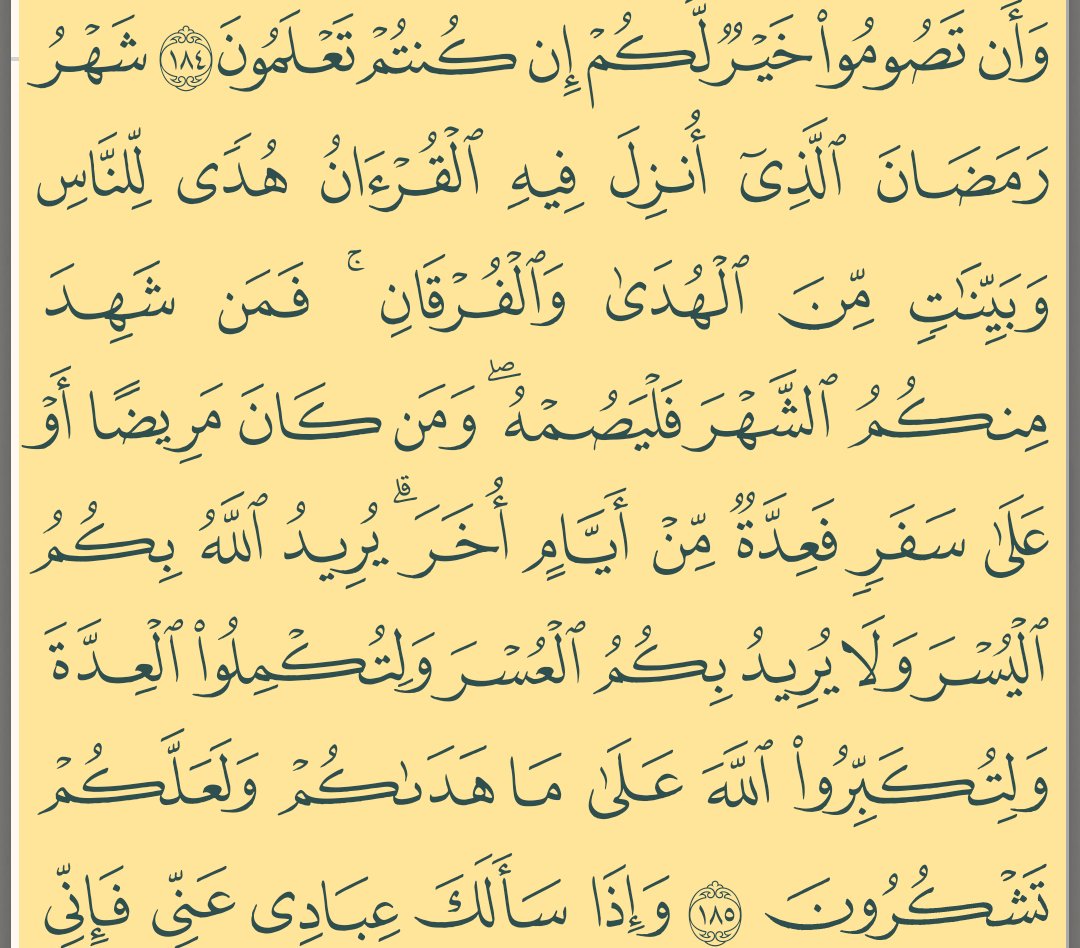 وَأَن تَصُومُوا۟ خَيْرٌ لَّكُمْ إِن كُنتُمْ تَعْلَمُونَ ١٨٤ شَهْرُ
رَمَضَانَ ٱلَّذِىٓ أُنزِلَ فِيهِ ٱلْقُرْءَانُ هُدًى لِّلنَّاسِ
وَبَيِّنَـٰتٍ مِّنَ ٱلْهُدَىٰ وَٱلْفُرْقَانِ ۚ فَمَن شَهِدَ
مِنكُمُ ٱلشَّهْرَ فَلْيَصُمْهُ ۖ وَمَن كَانَ مَرِيضًا أَوْ
عَلَىٰ سَفَرٍ فَعِدَّةٌ مِّنْ أَيَّامٍ أُخَرَ ۗ يُرِيدُ ٱللَّهُ بِكُمُ
ٱلْيُسْرَ وَلَا يُرِيدُ بِكُمُ ٱلْعُسْرَ وَلِتُكْمِلُوا۟ ٱلْعِدَّةَ
وَلِتُكَبِّرُوا۟ ٱللَّهَ عَلَىٰ مَا هَدَىٰكُمْ وَلَعَلَّكُمْ
تَشْكُرُونَ ١٨٥ وَإِذَا سَأَلَكَ عِبَادِى عَنِّى فَإِنِّى